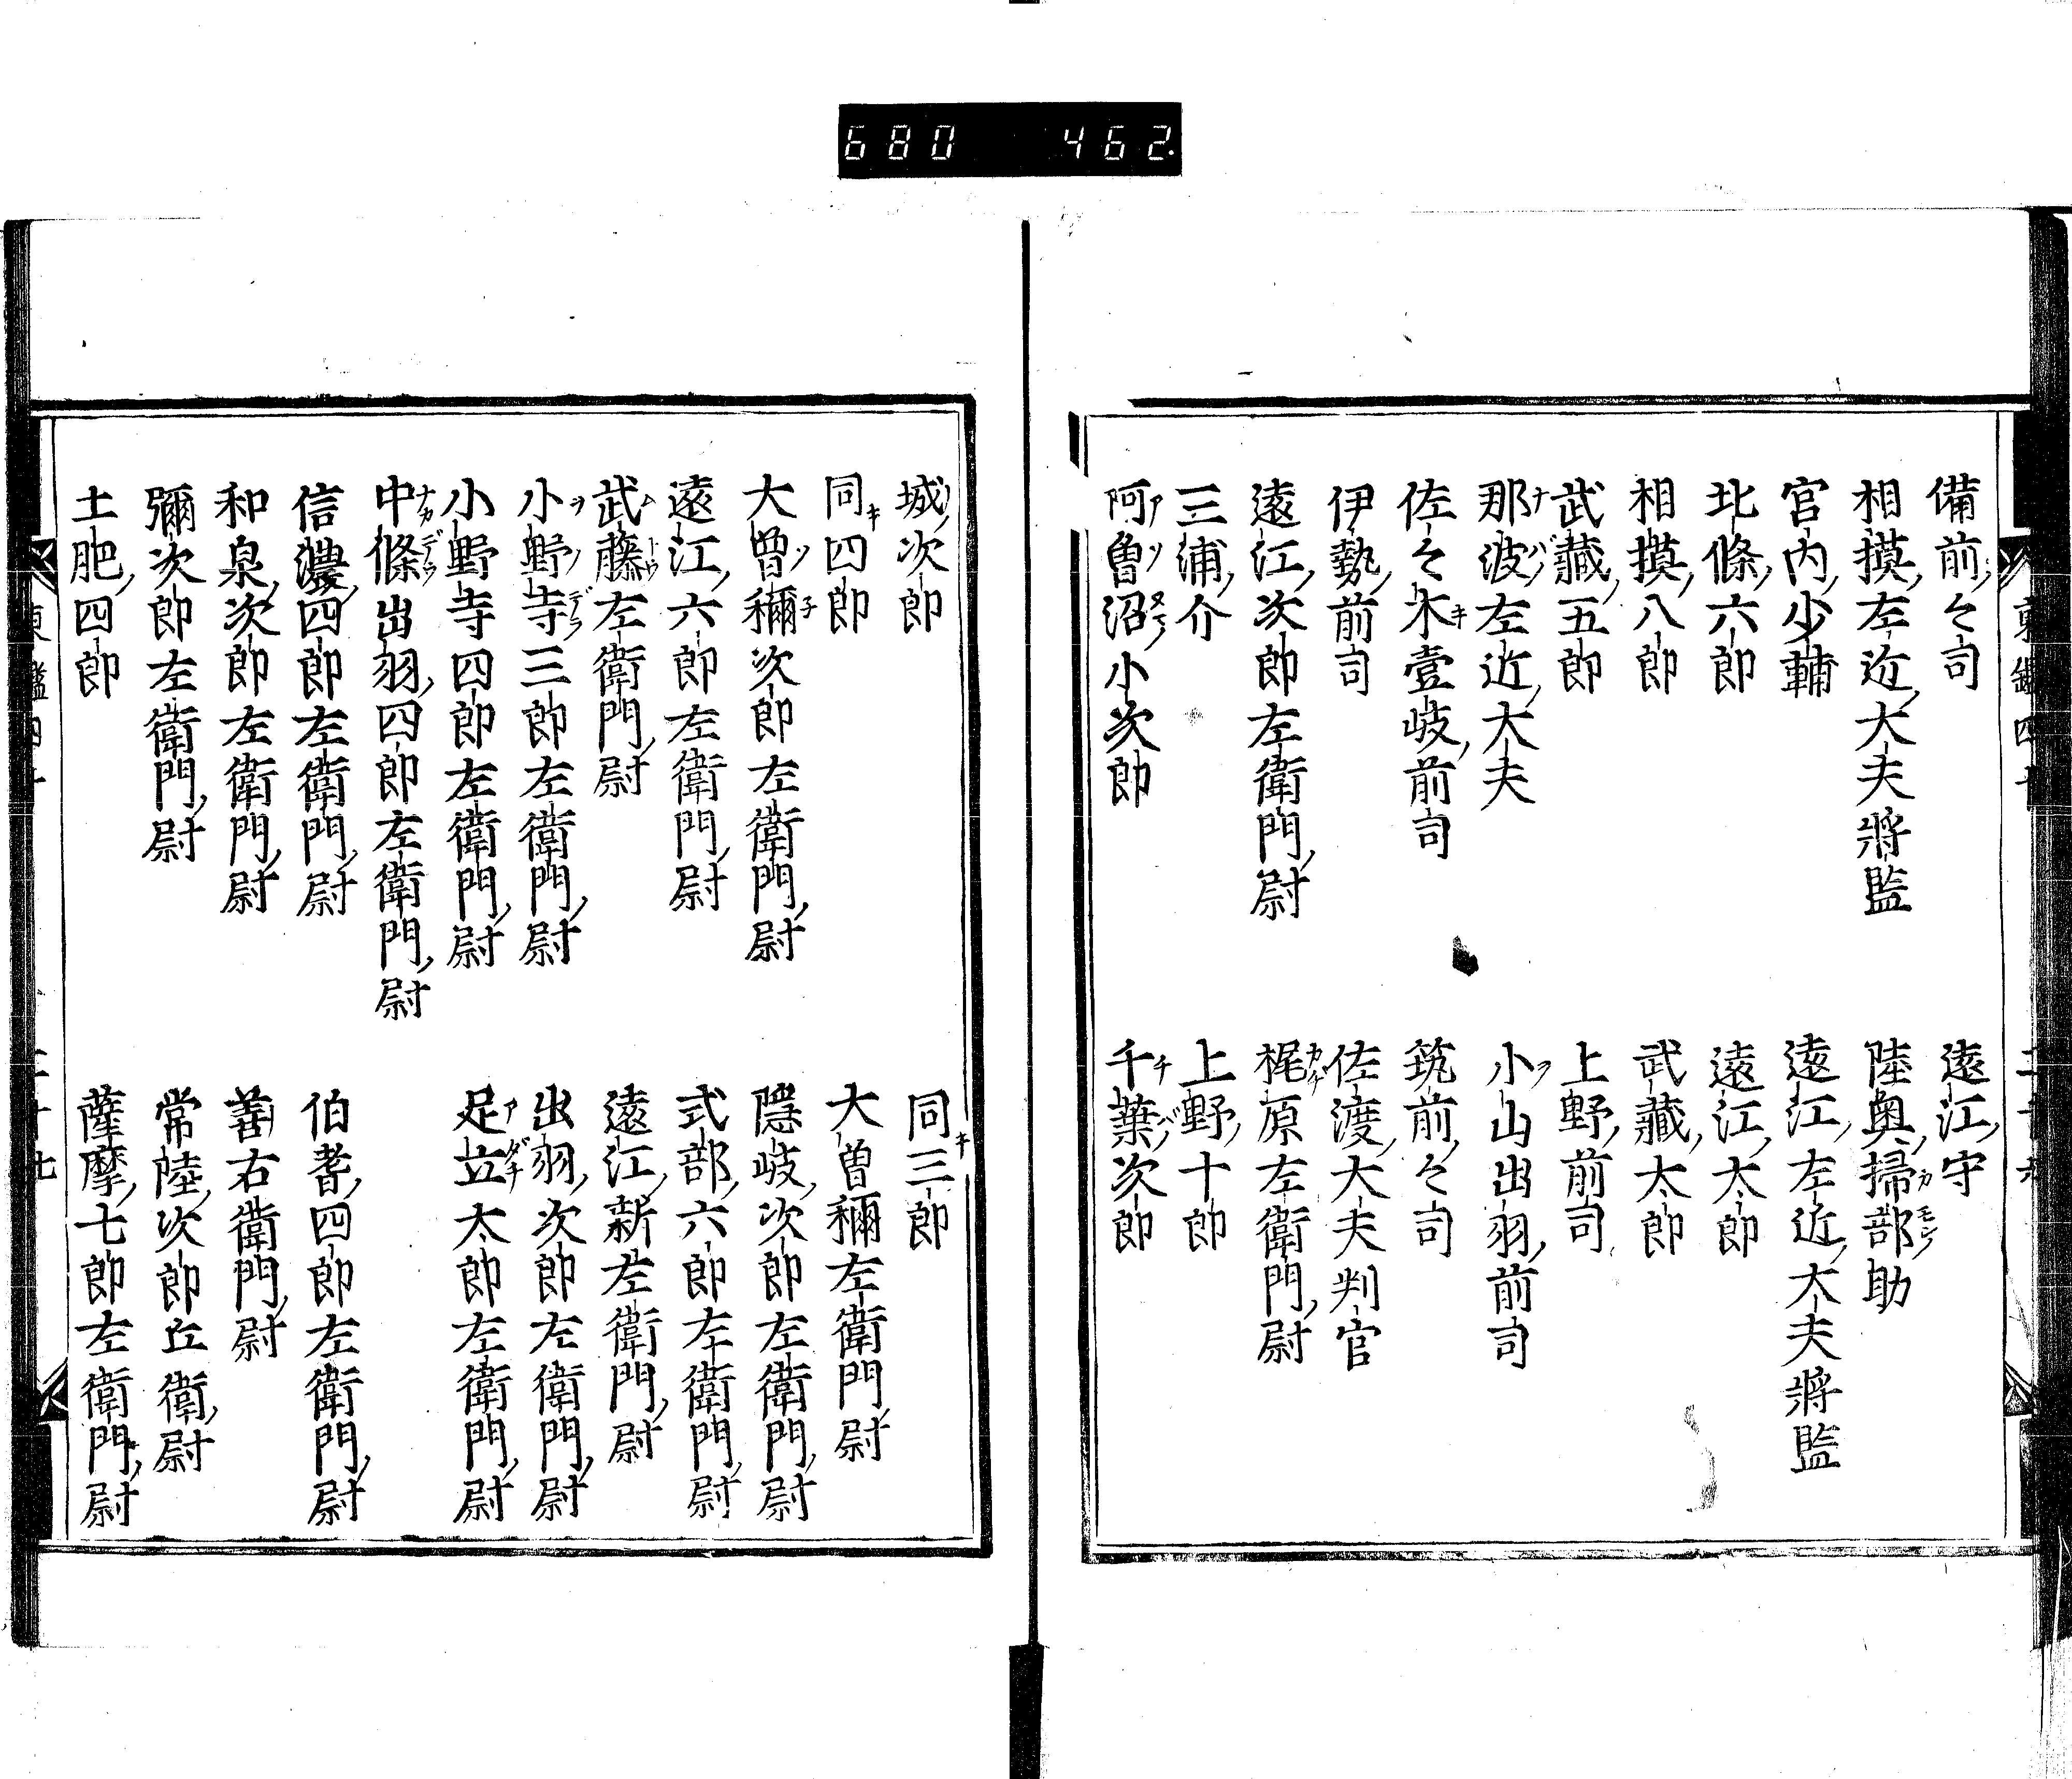 680 462.
備前々司 遠江守
相摸左近大夫將監 陸奥掃部助
宮内少輔 遠江左近大夫將監
北條六郎 遠江太郎
相摸八郎 武藏太郎
武藏五郎 上野前司
那波左近大夫 小山出羽前司
佐々木壹岐前司 筑前々司
伊勢前司 佐渡大夫判官
遠江次郎左衛門尉 梶原左衛門尉
三浦介 上野十郎
阿曽沼小次郎 千葉次郎
城次郎 同三郎
同四郎 大曽禰左衛門尉
大曽禰次郎左衛門尉 隠岐次郎左衛門尉
遠江六郎左衛門尉 式部六郎左衛門尉
武藤左衛門尉 遠江新左衛門尉
小野寺三郎左衛門尉 出羽次郎左衛門尉
小野寺四郎左衛門尉 足立太郎左衛門尉
中條出羽四郎左衛門尉
信濃四郎左衛門尉 伯耆四郎左衛門尉
和泉次郎左衛門尉 善右衛門尉
彌次郎左衛門尉 常陸次郎兵衛尉
土肥四郎 薩摩七郎左衛門尉